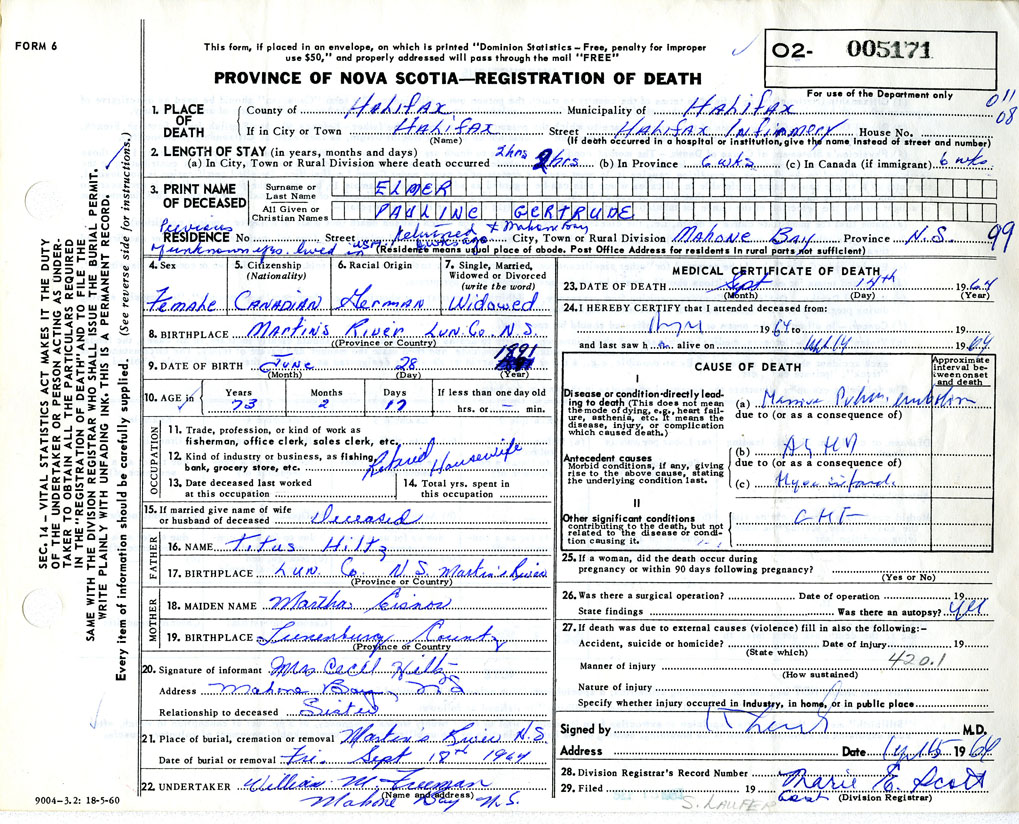 FORM 6
This form, if placed in an envelope, on which is printed "Dominion Statistics – Free, penalty for improper
use $50," and properly addressed will pass through the mail "FREE"
O2- 005171
PROVINCE OF NOVA SCOTIA—REGISTRATION OF DEATH
For use of the Department only
011
08
1. PLACE OF DEATH
County of Halifax Municipality of Halifax
If in City or Town Halifax Street Halifax Infirmery House No.
(Name) (If death occurred in a hospital or institution, give the name instead of street and number)
2. LENGTH OF STAY (in years, months and days)
(a) In City, Town or Rural Division where death occurred 2 hrs 2 hrs (b) In Province 6 wks (c) In Canada (if immigrant) 6 wks
3. PRINT NAME OF DECEASED
Surname or Last Name ELMER
All Given or Christian Names PAULINE GERTRUDE
Previous Returned to Mahone Bay
RESIDENCE No Street 6 wks ago City, Town or Rural Division Mahone Bay Province N.S. 99
unknown yrs. lived in USA (Residence means usual place of abode. Post Office Address for residents in rural parts not sufficient)
4. Sex Female
5. Citizenship (Nationality) Canadian
6. Racial Origin German
7. Single, Married, Widowed or Divorced (write the word) Widowed
8. BIRTHPLACE Martins River Lun. Co. N.S.
(Province or Country)
1891
9. DATE OF BIRTH June 28
(Month) (Day) (Year)
10. AGE in Years 73 Months 2 Days 17 If less than one day old hrs. or — min.
OCCUPATION
11. Trade, profession, or kind of work as fisherman, office clerk, sales clerk, etc.
12. Kind of industry or business, as fishing, bank, grocery store, etc. Retired Housewife
13. Date deceased last worked at this occupation
14. Total yrs. spent in this occupation
15. If married give name of wife or husband of deceased Deceased
FATHER
16. NAME Titus Hiltz
17. BIRTHPLACE Lun. Co. N.S. Martin's River
(Province or Country)
MOTHER
18. MAIDEN NAME Martha Eisnor
19. BIRTHPLACE Lunenburg County
(Province or Country)
20. Signature of informant Mrs Cecil Hiltz
Address Mahone Bay, NS
Relationship to deceased Sister
21. Place of burial, cremation or removal Martin's River N.S.
Date of burial or removal Fri. Sept 18th 1964
22. UNDERTAKER William M. Freeman
(Name and address)
Mahone Bay N.S.
9004-3.2: 18-5-60
MEDICAL CERTIFICATE OF DEATH
23. DATE OF DEATH Sept 14th 1964
(Month) (Day) (Year)
24. I HEREBY CERTIFY that I attended deceased from:
1964 to 19
and last saw h alive on 1964
CAUSE OF DEATH
Approximate interval between onset and death
I
Disease or condition directly leading to death (This does not mean the mode of dying, e.g., heart failure, asthenia, etc. It means the disease, injury, or complication which caused death.)
(a) Massive Pulm.
due to (or as a consequence of)
Antecedent causes
Morbid conditions, if any, giving rise to the above cause, stating the underlying condition last.
(b) ASHD
due to (or as a consequence of)
(c)
II
Other significant conditions contributing to the death, but not related to the disease or condition causing it.
CHF
25. If a woman, did the death occur during pregnancy or within 90 days following pregnancy?
(Yes or No)
26. Was there a surgical operation? Date of operation 19
State findings Was there an autopsy? yes
27. If death was due to external causes (violence) fill in also the following:–
Accident, suicide or homicide? Date of injury 19
(State which)
Manner of injury 420.1
(How sustained)
Nature of injury
Specify whether injury occurred in industry, in home, or in public place
Signed by M.D.
Address Date 15 1964
28. Division Registrar's Record Number
29. Filed 19 Marie E. Scott
(Division Registrar)
S. LAUFER
SEC. 14 – VITAL STATISTICS ACT MAKES IT THE DUTY
OF THE UNDERTAKER OR PERSON ACTING AS UNDER-
TAKER TO OBTAIN ALL THE PARTICULARS REQUIRED
IN THE "REGISTRATION OF DEATH" AND TO FILE THE
SAME WITH THE DIVISION REGISTRAR WHO SHALL ISSUE THE BURIAL PERMIT.
WRITE PLAINLY WITH UNFADING INK. THIS IS A PERMANENT RECORD.
Every item of information should be carefully supplied. (See reverse side for instructions.)